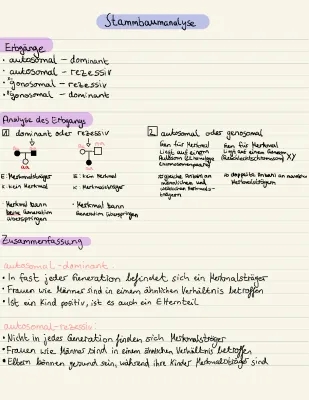 Stammbaumanalyse
Erbgänge
• autosomal - dominant
• autosomal - rezessiv
• gonosomal - rezessiv
• gonosomal - dominant
Analyse des Erbgangs
1 dominant oder rezessiv
E: Merkmalsträger
K: kein Merkmal
• Merkmal kann keine Generation überspringen
E: kein Merkmal
K: Merkmalsträger
• Merkmal kann Generation überspringen
2. autosomal oder gonosomal
Gen für Merkmal
liegt auf einem
Autosom
Gen für Merkmal
liegt auf einem
XY
Anzahl an
männlichen und
weiblichen
Anzahl an
Merkmalsträgern
Zusammenfassung
autosomal-dominant
• In fast jeder Generation befindet sich ein Merkmalsträger
• Frauen wie Männer sind in einem ähnlichen Verhältnis betroffen
• Ist ein Kind positiv, ist es auch ein Elternteil
autosomal-rezessiv
• Nicht in jedes Generation finden sich Merkmalsträger
• Frauen wie Männer sind in einem ähnlichen Verhältnis betroffen
• Eltern können gesund sein, während ihre Kinder Merkmalsträger sind